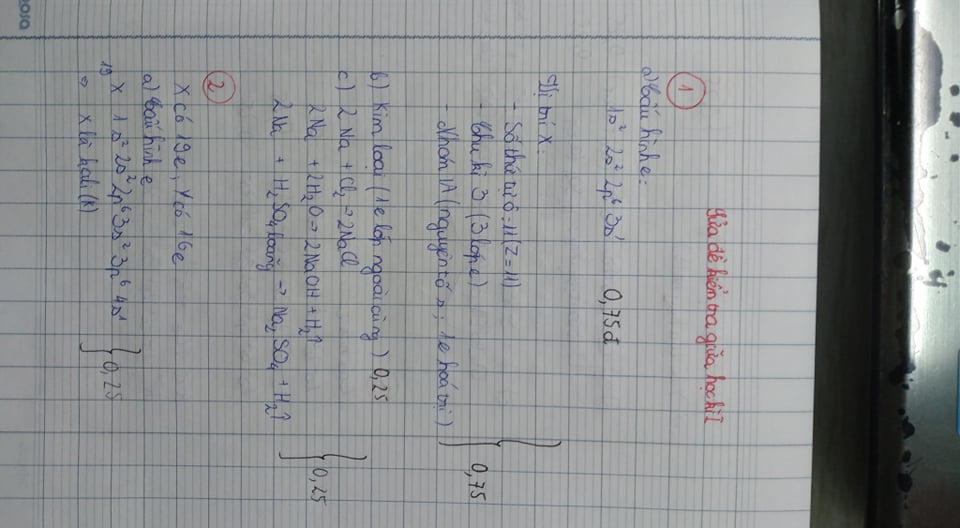 Sửa đề kiểm tra giữa học kì I
1
a) Cấu hình e:
1s² 2s² 2p⁶ 3s¹ 0,75đ
Vị trí X:
- Số thứ tự ô: 11 (Z = 11)
- Chu kì 3 (3 lớp e)
- Nhóm IA (nguyên tố s; 1e hoá trị) } 0,75
b) Kim loại (1e lớp ngoài cùng) 0,25
c) 2Na + Cl₂ → 2NaCl
2Na + 2H₂O → 2NaOH + H₂↑
2Na + H₂SO₄ loãng → Na₂SO₄ + H₂↑ } 0,25
2
X có 19e, Y có 16e
a) Cấu hình e
₁₉X 1s² 2s² 2p⁶ 3s² 3p⁶ 4s¹
⇒ X là kali (K) } 0,25